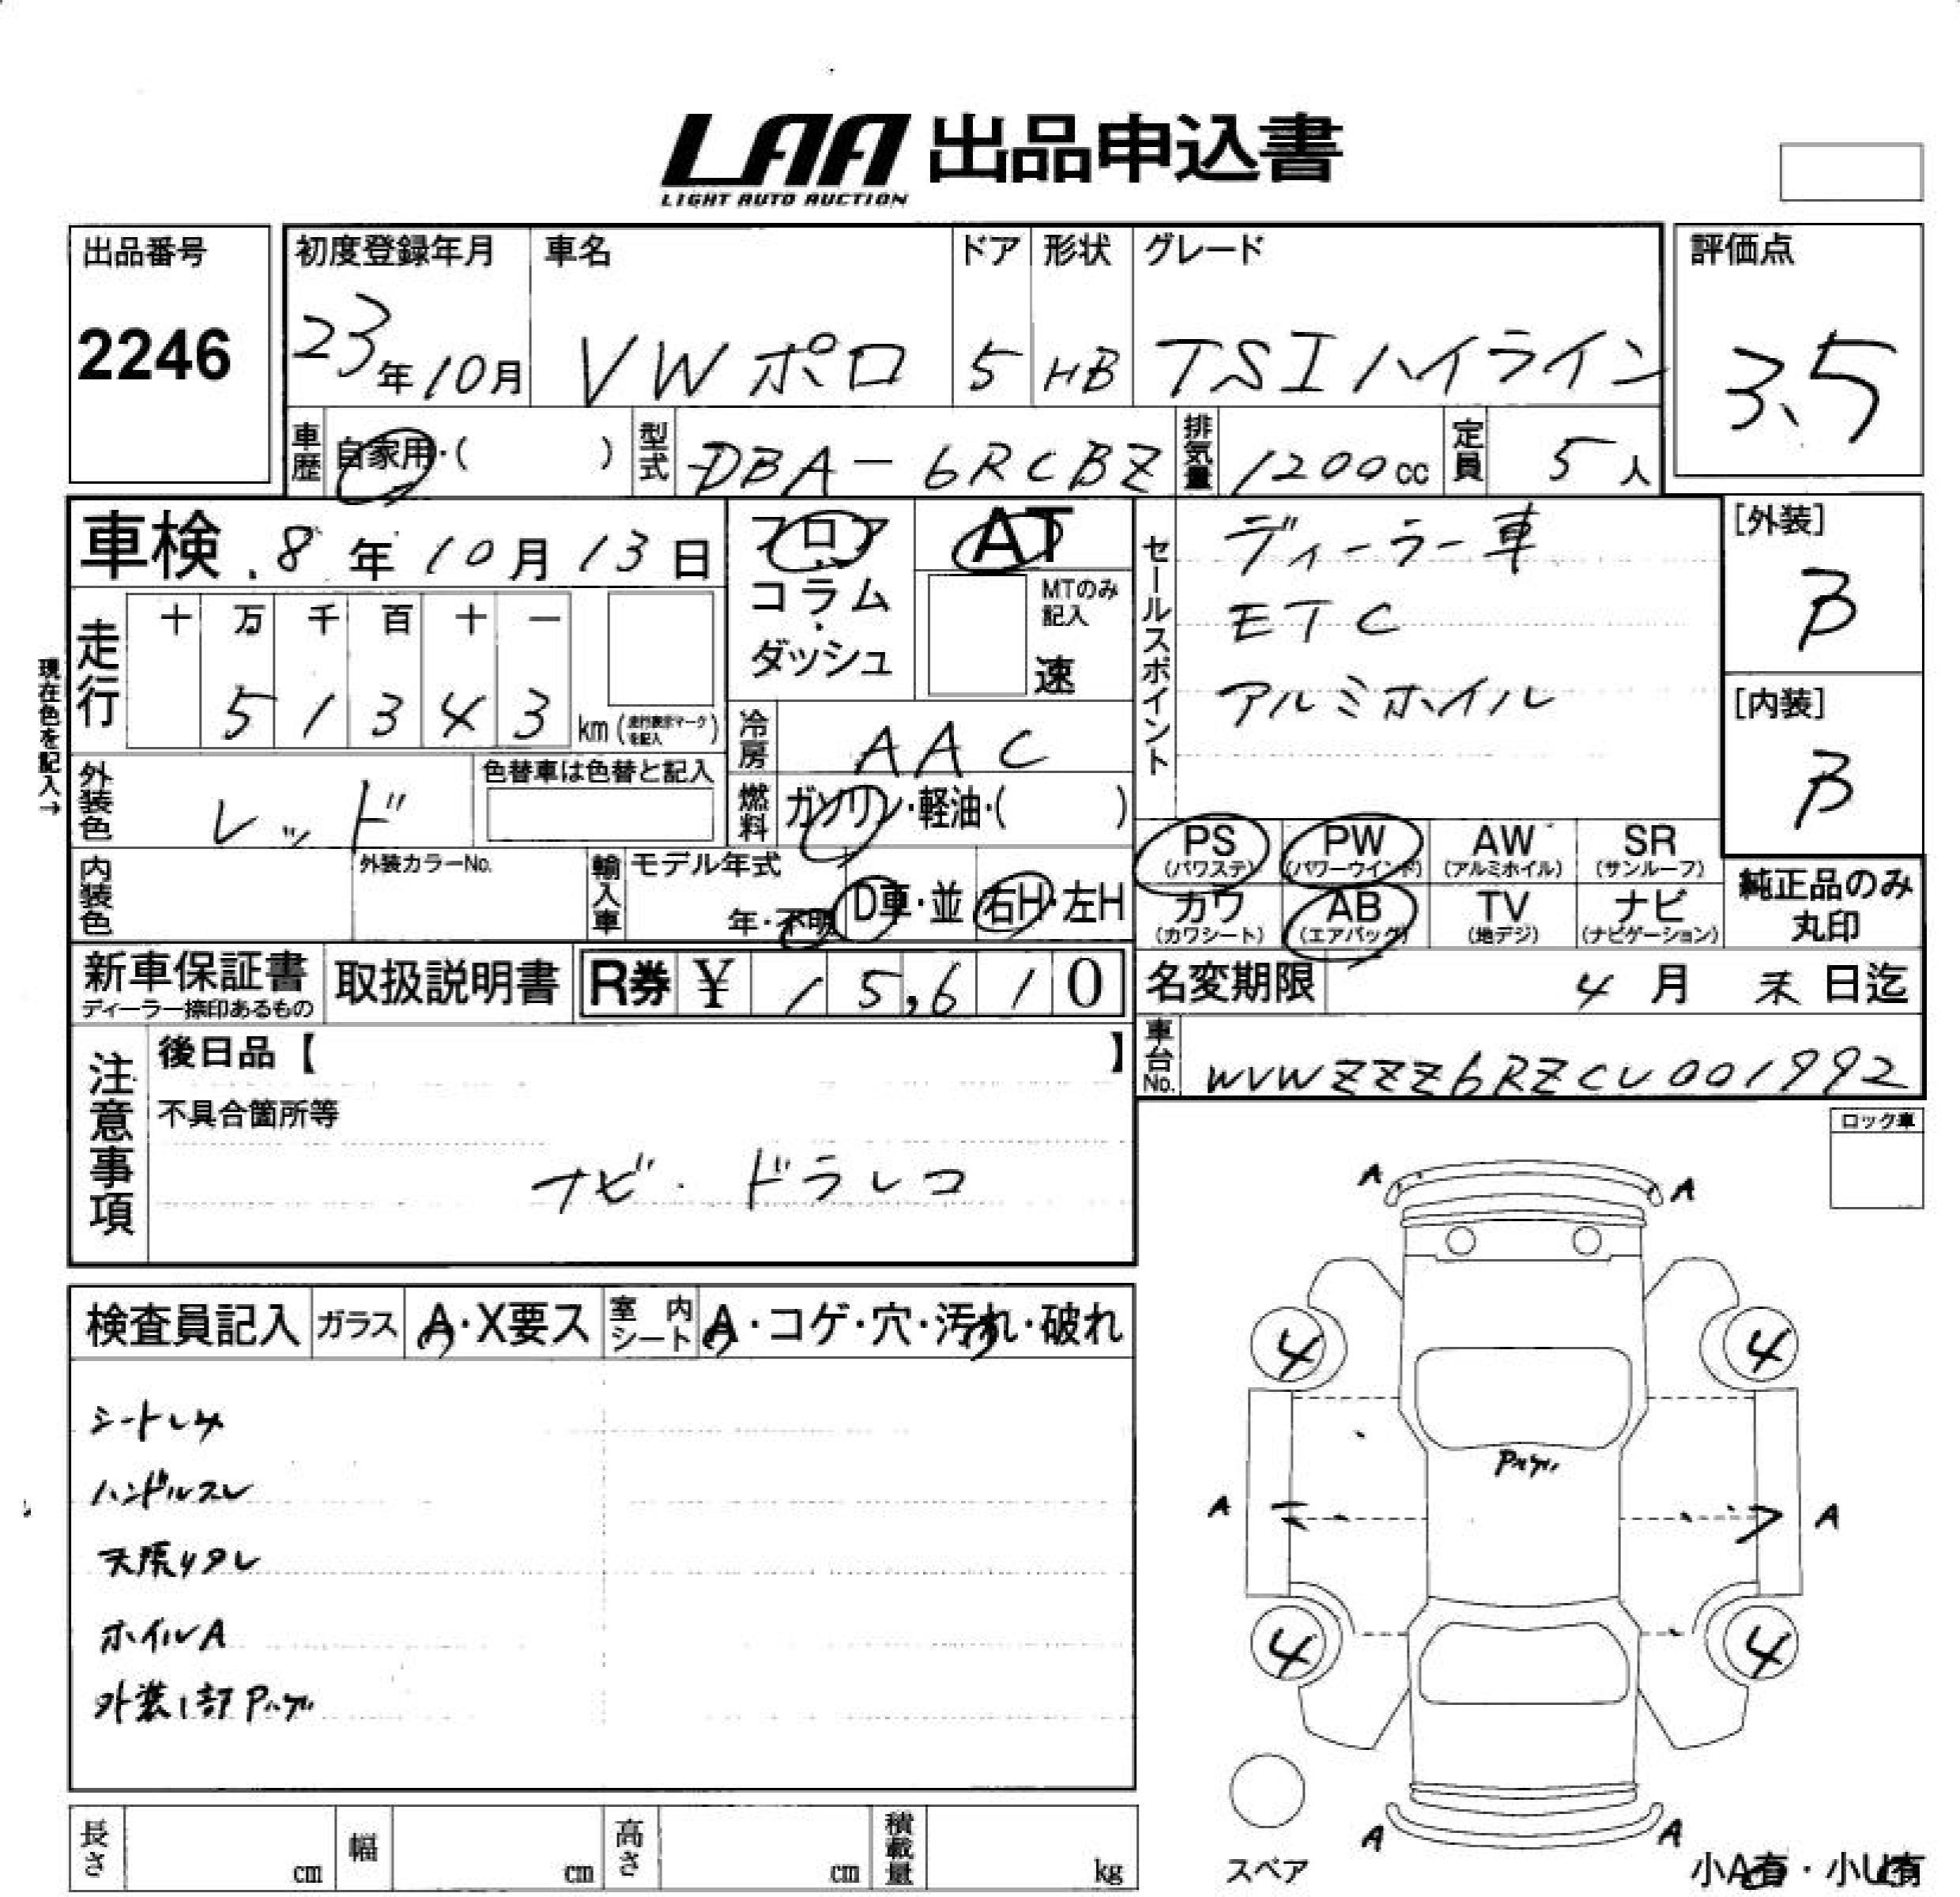 LAA 出品申込書
LIGHT AUTO AUCTION
出品番号
2246
初度登録年月
23年10月
車名
VWポロ
ドア
5
形状
HB
グレード
TSIハイライン
評価点
3.5
車歴
自家用・( )
型式
DBA-6RCBZ
排気量
1200cc
定員
5人
車検 8年10月13日
現在色を記入→
走行
十 万 千 百 十 一
5 1 3 4 3 km(走行表示マークを記入)
フロア
・
コラム
・
ダッシュ
AT
MTのみ記入
速
冷房
AAC
燃料
ガソリン・軽油・( )
外装色
レッド
色替車は色替と記入
内装色
外装カラーNo.
輸入車
モデル年式
年・不明
D車・並
右H・左H
セールスポイント
ディーラー車
ETC
アルミホイル
[外装]
B
[内装]
B
PS
(パワステ)
PW
(パワーウインド)
AW
(アルミホイル)
SR
(サンルーフ)
カワ
(カワシート)
AB
(エアバッグ)
TV
(地デジ)
ナビ
(ナビゲーション)
純正品のみ
丸印
新車保証書
ディーラー捺印あるもの
取扱説明書
R券 ¥ 15,610
名変期限 4月末日迄
車台No.
WVWZZZ6RZCU001992
注意事項
後日品【 】
不具合箇所等
ナビ・ドラレコ
ロック車
検査員記入
ガラス
A・X要ス
室内シート
A・コゲ・穴・汚れ・破れ
ハンドルスレ
天張りタレ
ホイルA
外装1部Pハゲ
A
A
4
4
Pハゲ
A
A
4
4
A
A
スペア
小A有・小U有
長さ
cm
幅
cm
高さ
cm
積載量
kg